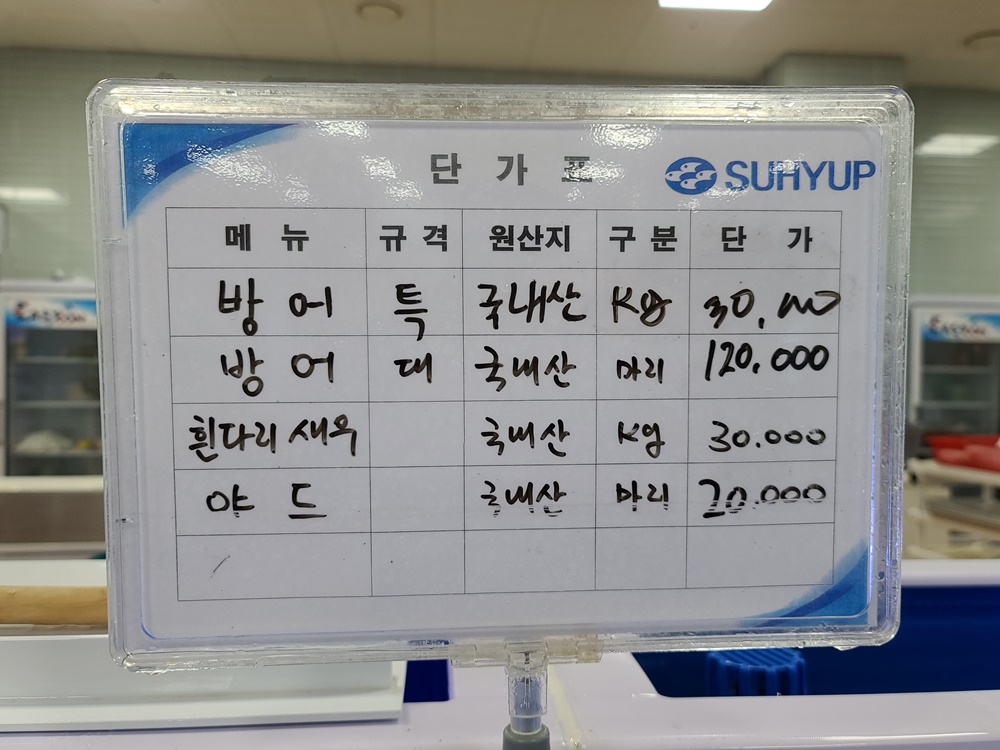 단 가 표
SUHYUP
메 뉴 규 격 원산지 구 분 단 가
방 어 특 국내산 Kg 30,000
방 어 대 국내산 마리 120.000
흰다리 새우 국내산 Kg 30.000
야 드 국내산 마리 20.000